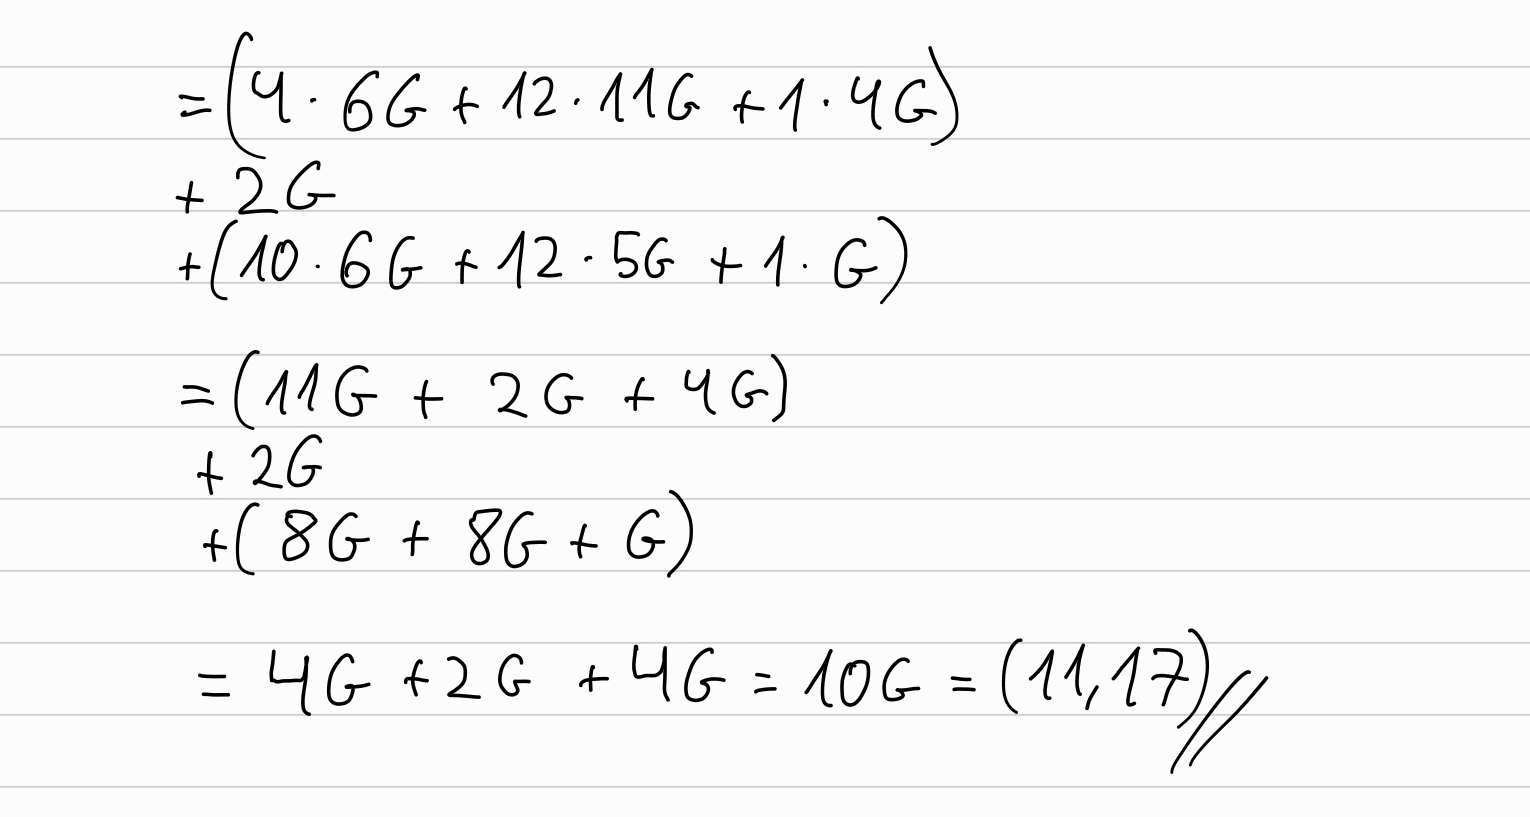 =(4·6G+12·11G+1·4G)
+2G
+(10·6G+12·5G+1·G)
=(11G+2G+4G)
+2G
+(8G+8G+G)
=4G+2G+4G=10G=(11,17)//